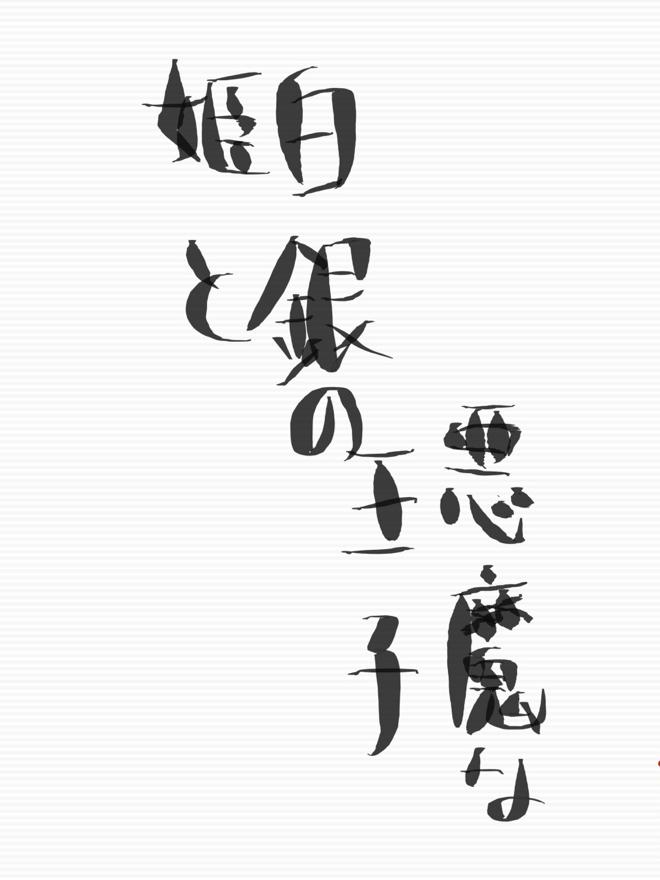 悪魔な
白銀の王子
姫と